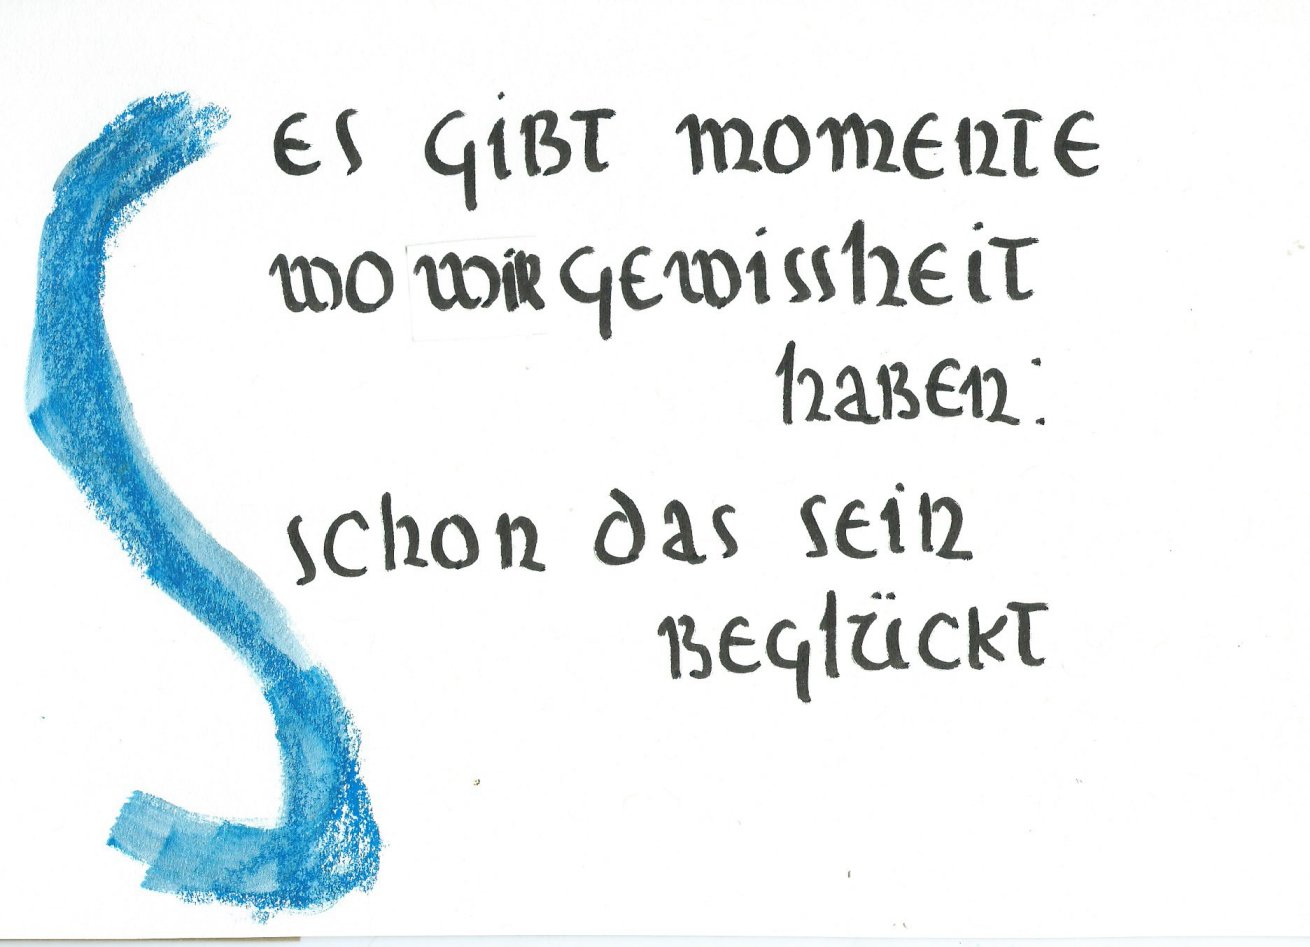 Es gibt Momente
wo wir Gewissheit
haben:
schon das Sein
beglückt